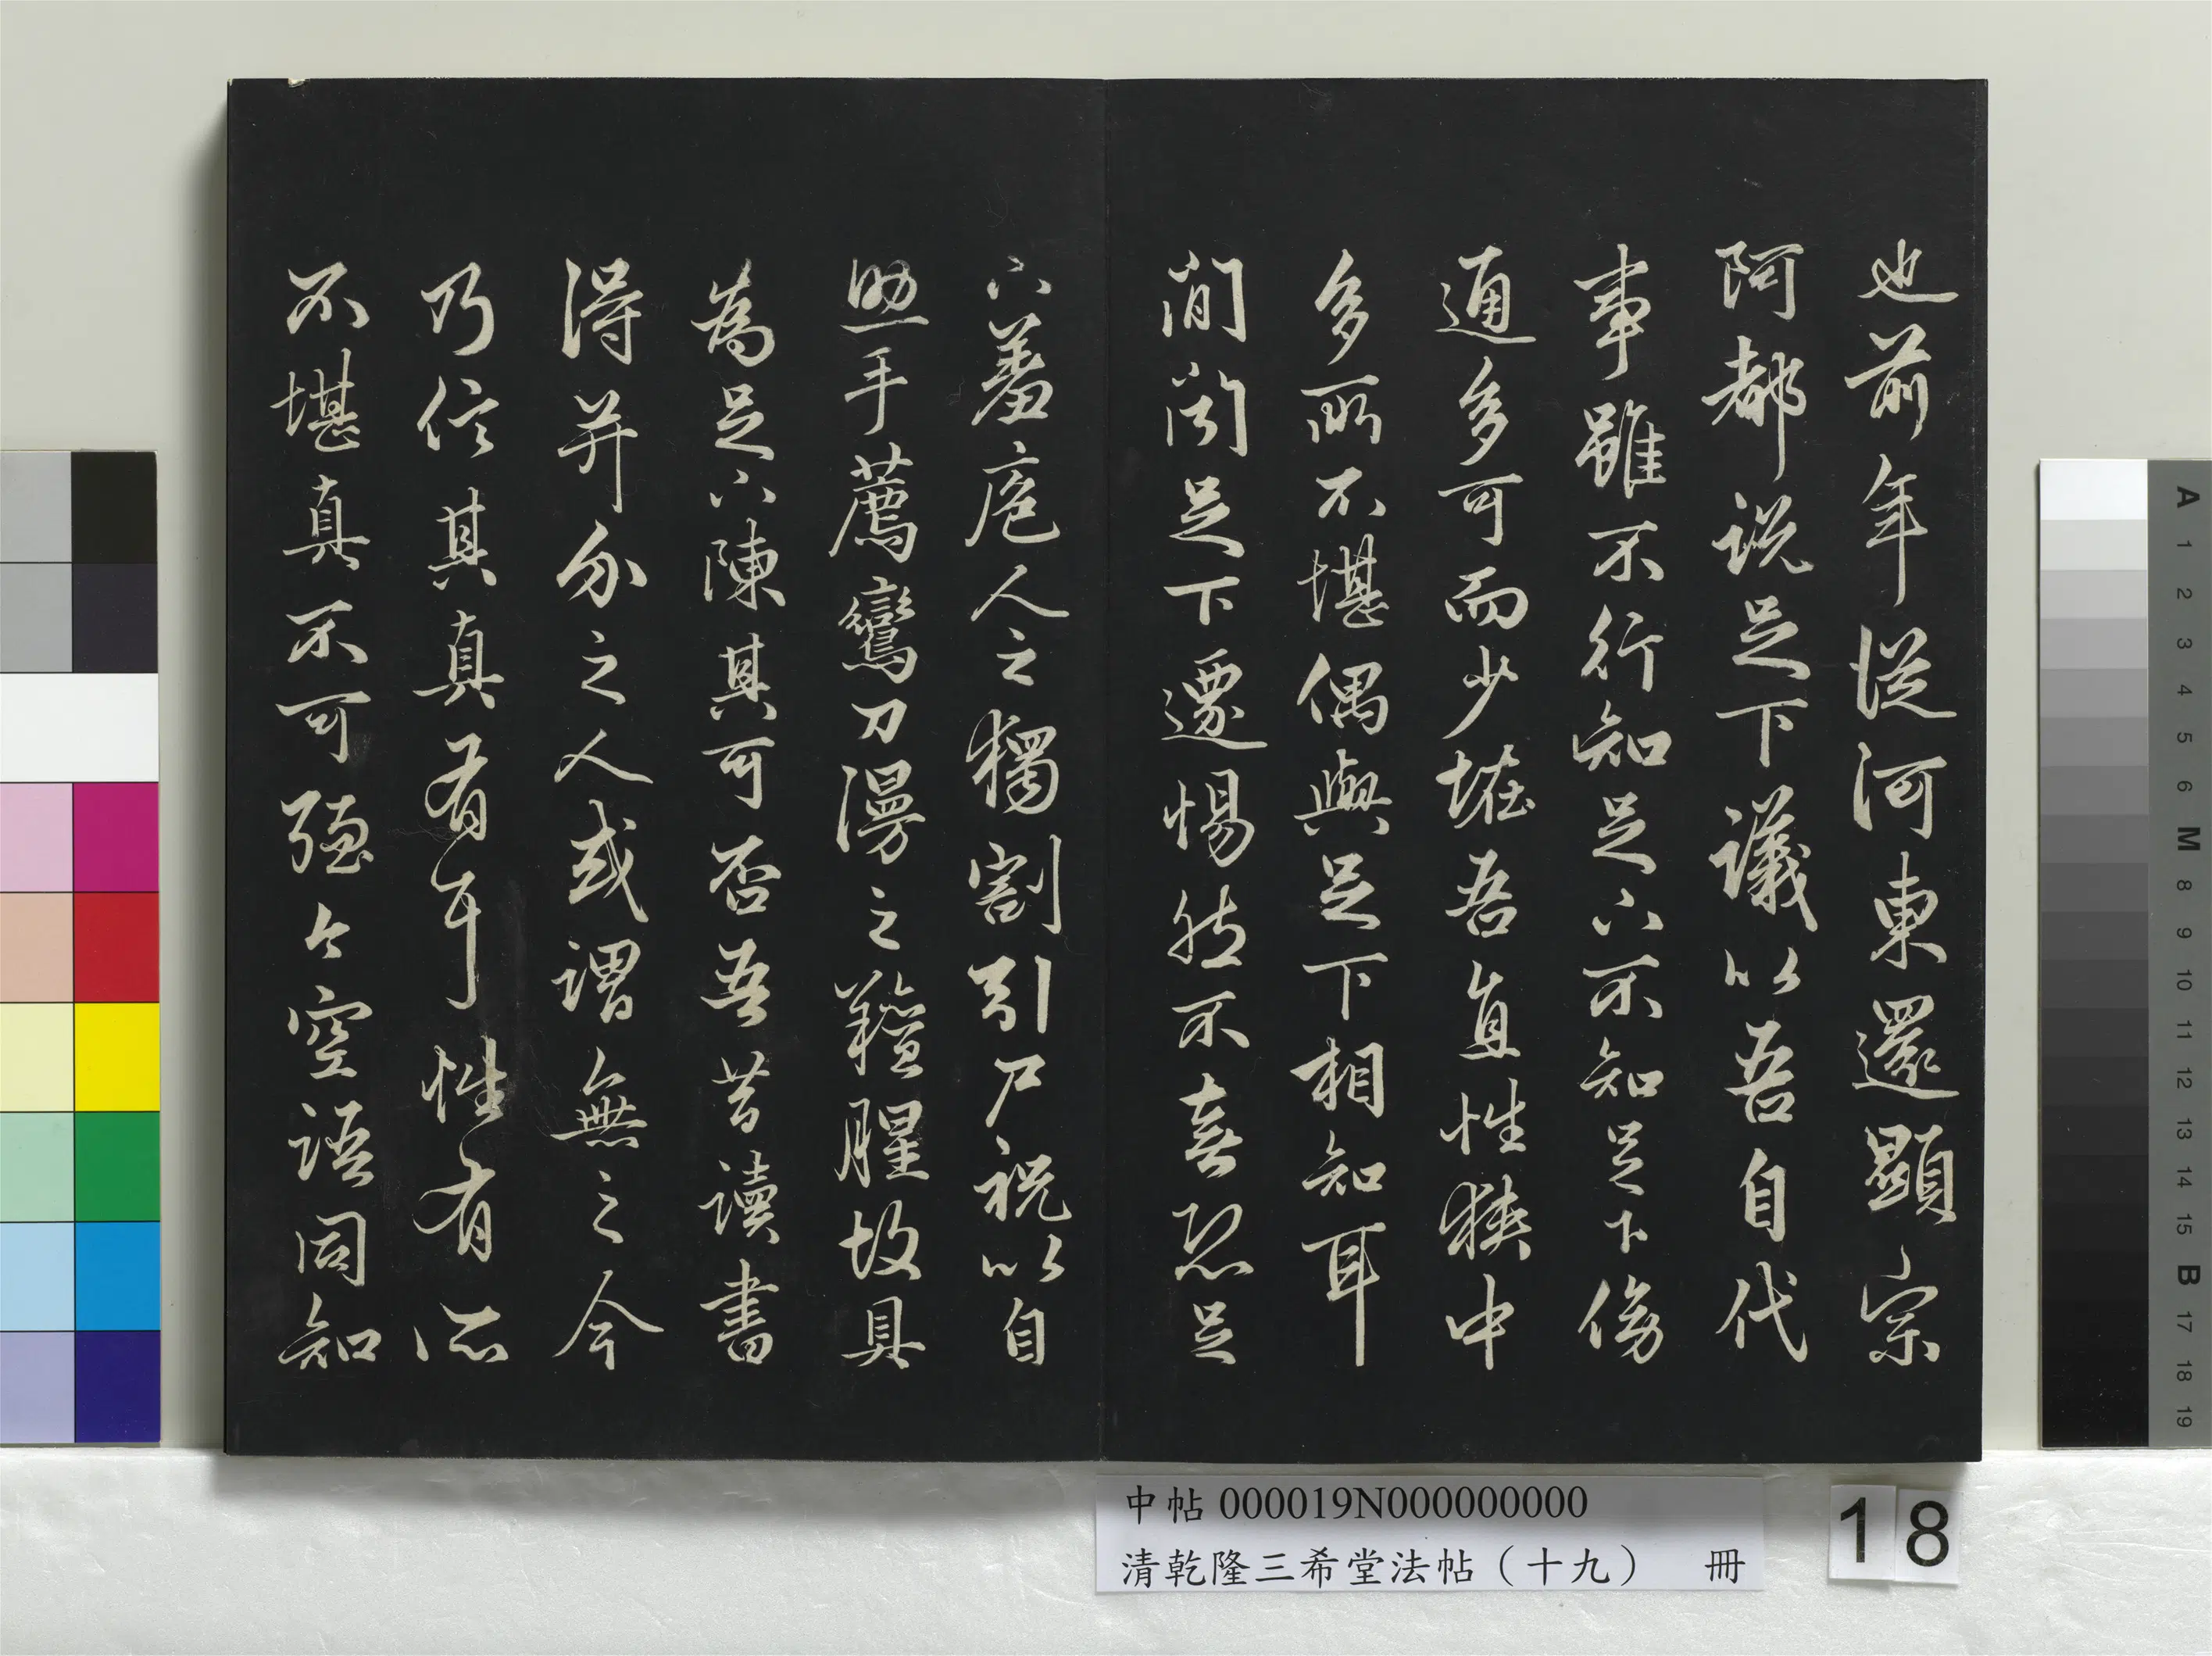 也前年從河東還顯宗
阿都說足下議以吾自代
事雖不行知足下不知足下傍
通多可而少怪吾直性狹中
多所不堪偶與足下相知耳
間聞足下遷惕然不喜恐足
下羞庖人之獨割引尸祝以自
助手薦鸞刀漫之羶腥故具
為足下陳其可否吾昔讀書
得并介之人或謂無之今
乃信其真有耳性有所
不堪真不可強今空語同知
中帖 000019N000000000
清乾隆三希堂法帖（十九） 冊
18
A
1
2
3
4
5
6
M
8
9
10
11
12
13
14
15
B
17
18
19